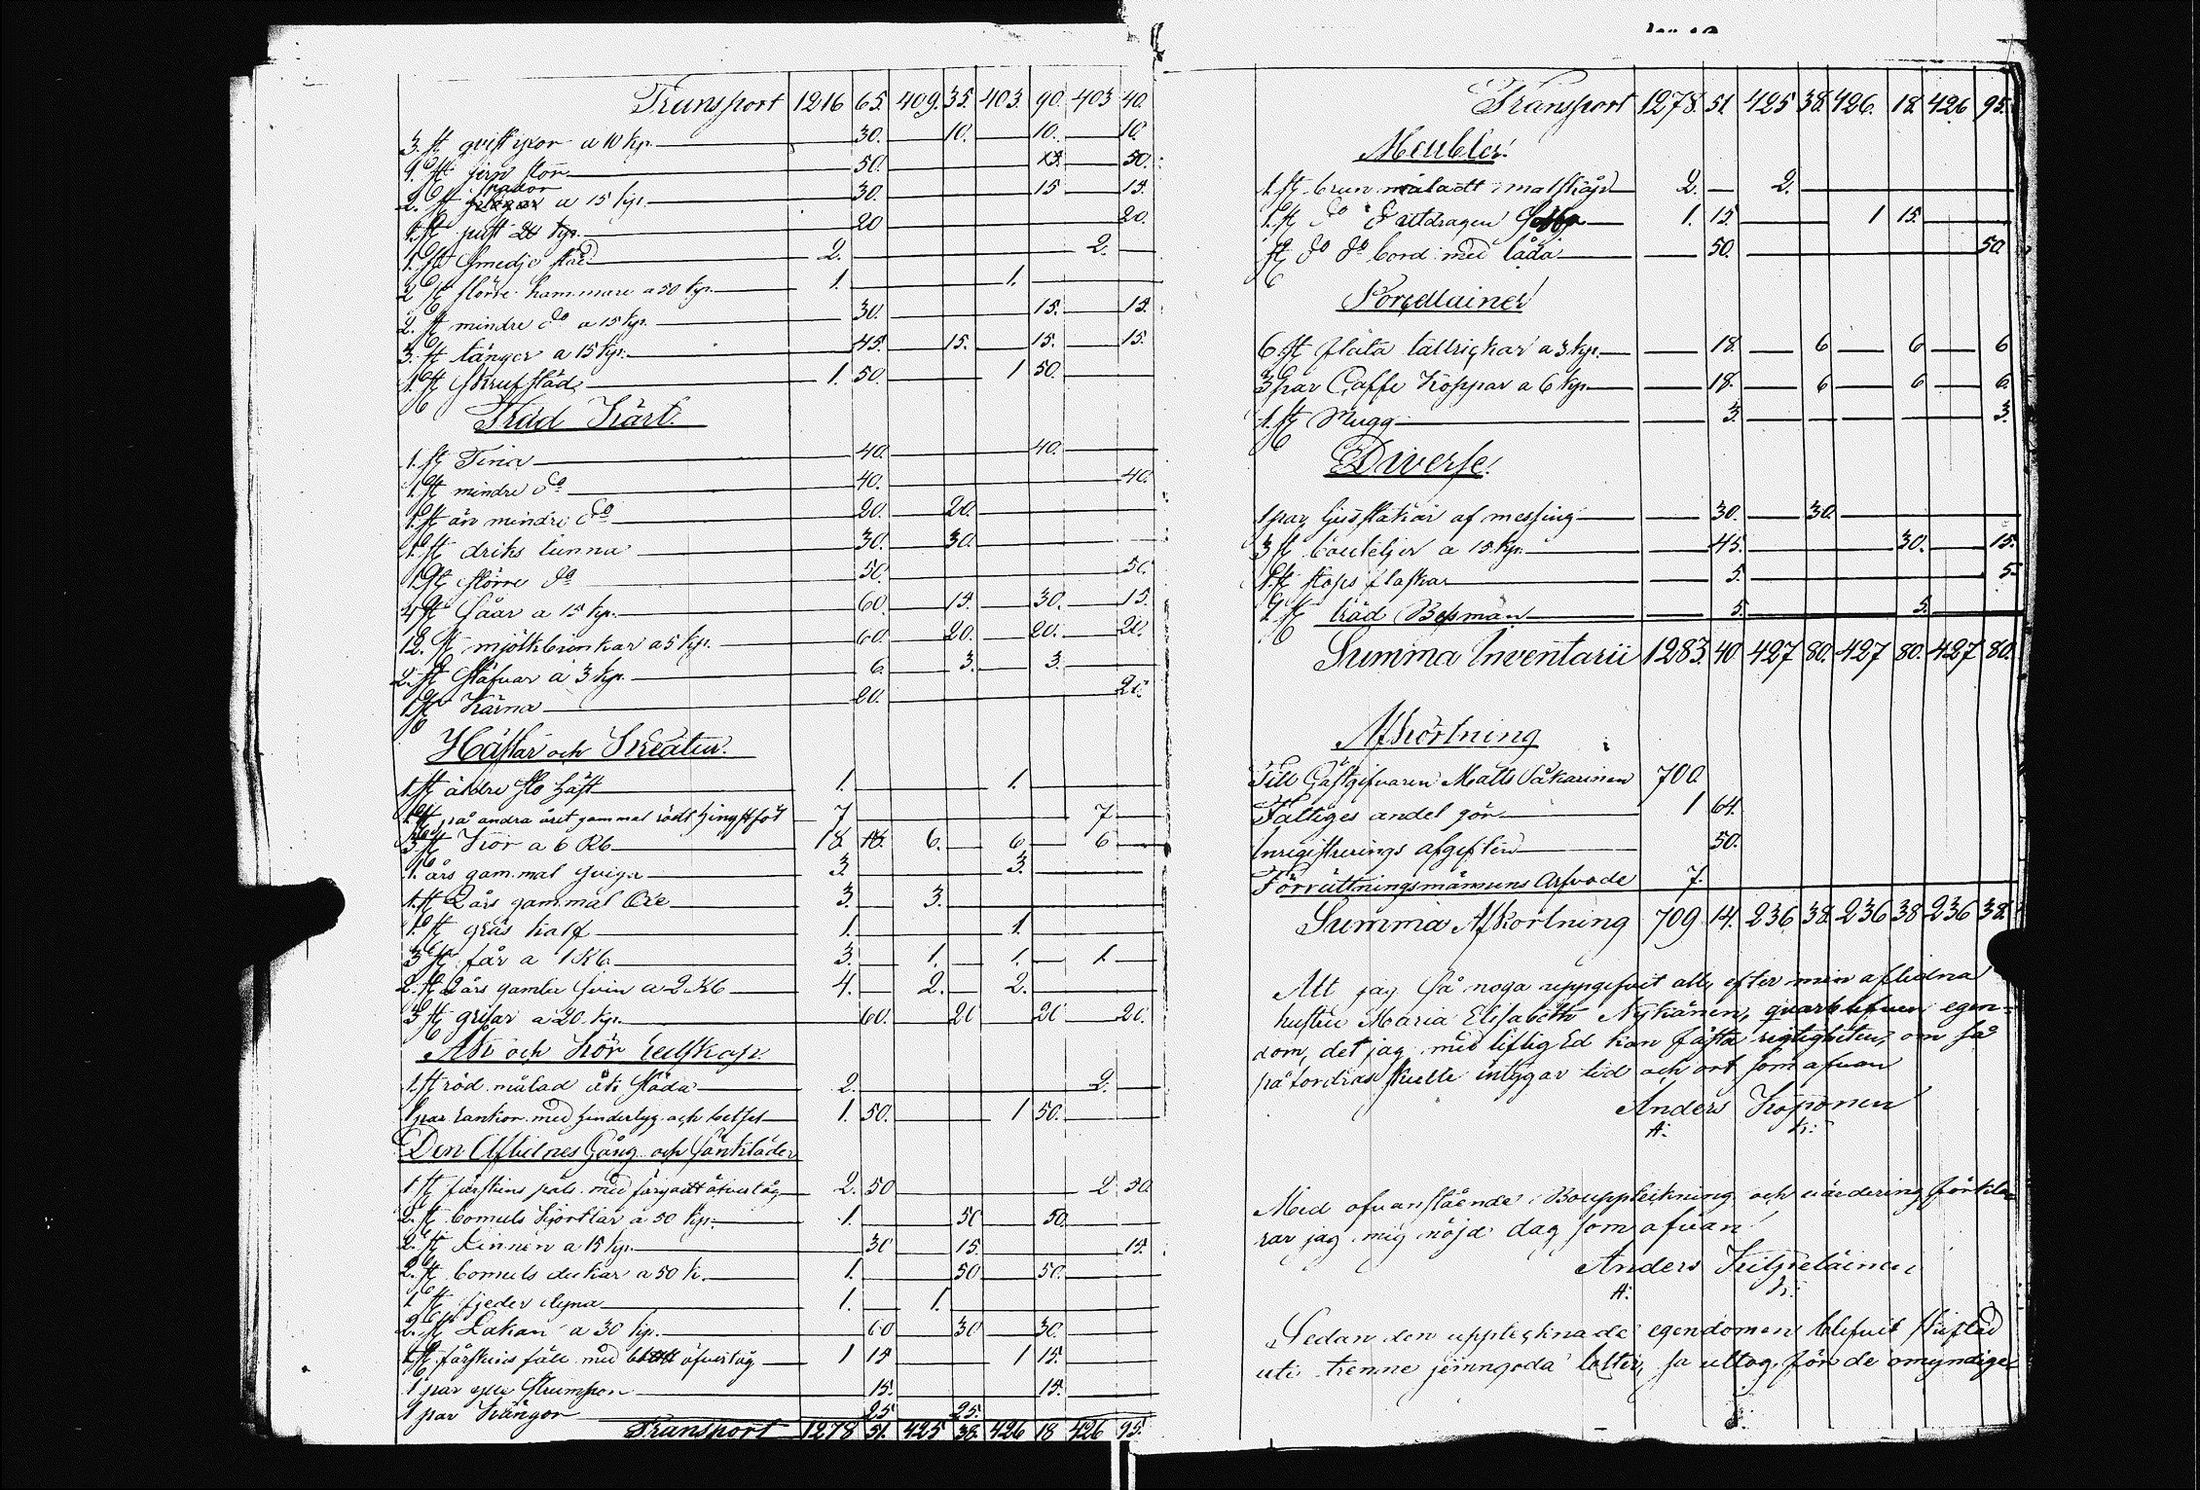 Transport 1216 65. 409. 35. 403. 90. 403 40.
3. st a 10 kp. 30. 10. 10. 10.
1. st jern stör 50. 50.
2. st a 15 kp. 30. 15 15.
1. st 20 20.
1. st smedje städ 2. 2.
2 st större hammare a 50 kp. 1. 1.
2. st mindre do a 15 kp. 30. 15. 15.
3. st tänger a 15 kp. 45. 15. 15. 15.
1. st Skrufstäd 1. 50. 1 50.
Träd Kärl.
1. st Tina 40. 40.
1. st mindre do 40. 40.
1. st än mindre do 20. 20.
1. st driks tunna 30. 30.
1 st större do 50. 50.
4 st Såar a 15 kp. 60. 15. 30. 15.
12. st mjölkbunkar a 5 kp. 60. 20. 20. 20.
2. st Stäfvar a 3 kp. 6. 3. 3.
1 st Kärna 20. 20.
Hästar och Kreatur.
1. st äldre sto häst 1. 1.
1 st på andra året gammal rödt hingstföl 7 7
3 st Kor a 6 Rb 18 18. 6. 6 6
1. års gammal qviga 3 3.
1. st 2 års gammal Oxe 3. 3.
1. st gräs kalf 1. 1.
3 st får a 1 Rb 3. 1. 1. 1.
2. st 2 års gamla svin a 2 Rb 4. 2. 2.
3 st grisar a 20 kp. 60. 20 20 20.
Åk och Kör redskap.
1. st röd målad åk släda 2. 2.
1 par rankor med och betsel 1. 50. 1 50.
Den Aflidnes Gång och Sängkläder
1 st fårskins päls med färgadt öfvertåg 2. 50 2 50.
2. st bomuls kjortlar a 50 kp. 1. 50 50.
2. st a 15 kp. 30 15. 15.
2. st bomuls dukar a 50 k. 1. 50 50.
1 st fjeder dyna 1. 1.
2. st Lakan a 30 kp. 60 30 30.
1 st fårskins fäll med öfvertåg 1 15 1 15.
1 par Strumpor 15. 15.
1 par Kängor 25 25.
Transport 1278 51. 425 38. 426 18 426 95.
Transport 1278. 51. 425 38. 426. 18. 426 95.
Meubler.
1. st brun måladt matskåp 2. 2.
1. st do utdragen 1. 15. 1 15.
st do do bord med låda 50. 50.
Porcellainer
6. st flata tallrickar a 3 kp. 18. 6 6 6
3 par Caffe Koppar a 6 kp. 18. 6 6 6.
1. st Mugg 3. 3.
Diverse.
1 par ljusstakar af messing 30. 30.
3 st bouteljer a 15 kp. 45. 30. 15.
1. st stops flaskar 5. 5.
1 st träd Besman 5. 5.
Summa Inventarii 1283. 40 427 80. 427 80. 427 80.
Afkortning
Till Gästgifvaren Matts Väkarinen 700.
Fattiges andel gör 1 64.
Inregistrerings afgiften 50.
Förrättningsmännens Arfvode 7.
Summa Afkortning 709 14. 236 38. 236 38 236 38.
Att jag så noga uppgifvit all efter min aflidna
hustru Maria Elisabeth Nykänen, quarblefven egen-
dom, det jag med liflig Ed kan fästa rigtigheten, om så
påfordras skulle intygar tid och ort som ofvan
Anders Koponen
A: K:
Med ofvanstående Bouppteckning och värdering förkla
rar jag mig nöjd dag som ofvan
Anders Kilpeläinen
A: K:
Sedan den upptecknade egendomen blifvit skiftad
uti trenne jemngoda lotter, så uttog för de omyndige